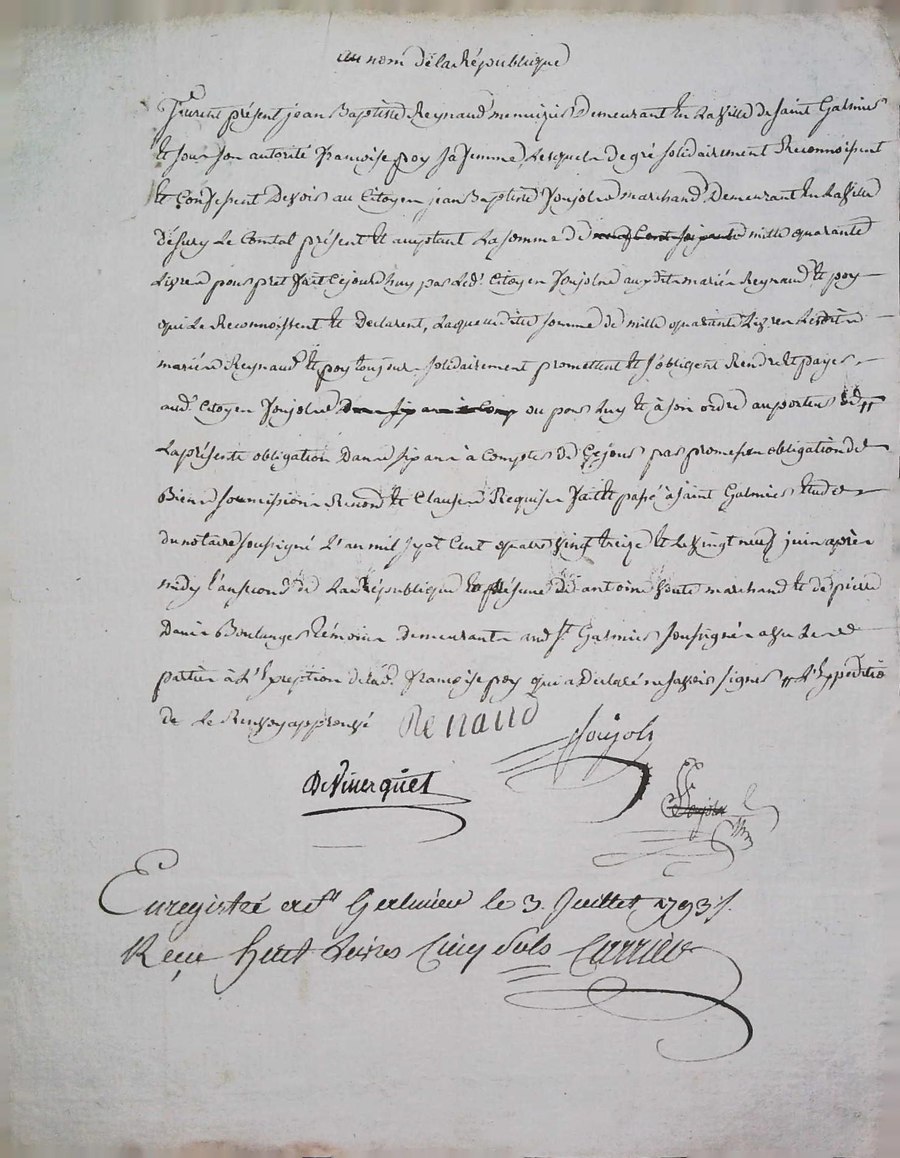 au nom de la République
Furent présent jean Baptiste Reynaud menuizier Demeurant En La Ville de Saint Galmier
Et sous son autorité francoise poy sa femme, Lesquels de gré solidairement Reconnoissent
Et Confessent Devoir au Citoyen jean Baptiste Joujols marchand Demeurant En La Ville
de Sury Le Comtal présent Et acceptant La somme de mille quarante
Livres pour pret fait Cejourd'huy par Led. Citoyen Joujols auxdits mariés Reynaud Et poy
qui Le Reconnoissent Et Declarent, Laquelle ditte somme de mille quarante Livres Lesdits
mariés Reynaud Et poy toujours solidairement promettent Et s'obligent Rendre Et payer
aud. Citoyen Joujols ou pour Luy Et à son ordre au porteur de
La présente obligation Dans six ans à Compter de Cejour par promesse obligation de
Biens soumission Renond. Et Clauses Requises fait Et passé à Saint Galmier Etude
du notaire soussigné L'an mil sept Cent quatre vingt treize Et Le vingt neuf juin après
midy l'an second de La République En présence de antoine marchand Et de pierre
Boulanger témoins demeurants aud. St. Galmier soussignés avec Les
parties à L'Exception de Lad. francoise poy qui a Déclaré ne savoir signer L'Expedition
de Le Renvoy approuvé Renaud Joujols
DeVinerquet
Enregistré à St. Galmier le 3. Juillet 1793
Reçu huit Livres Cinq Sols Carrier